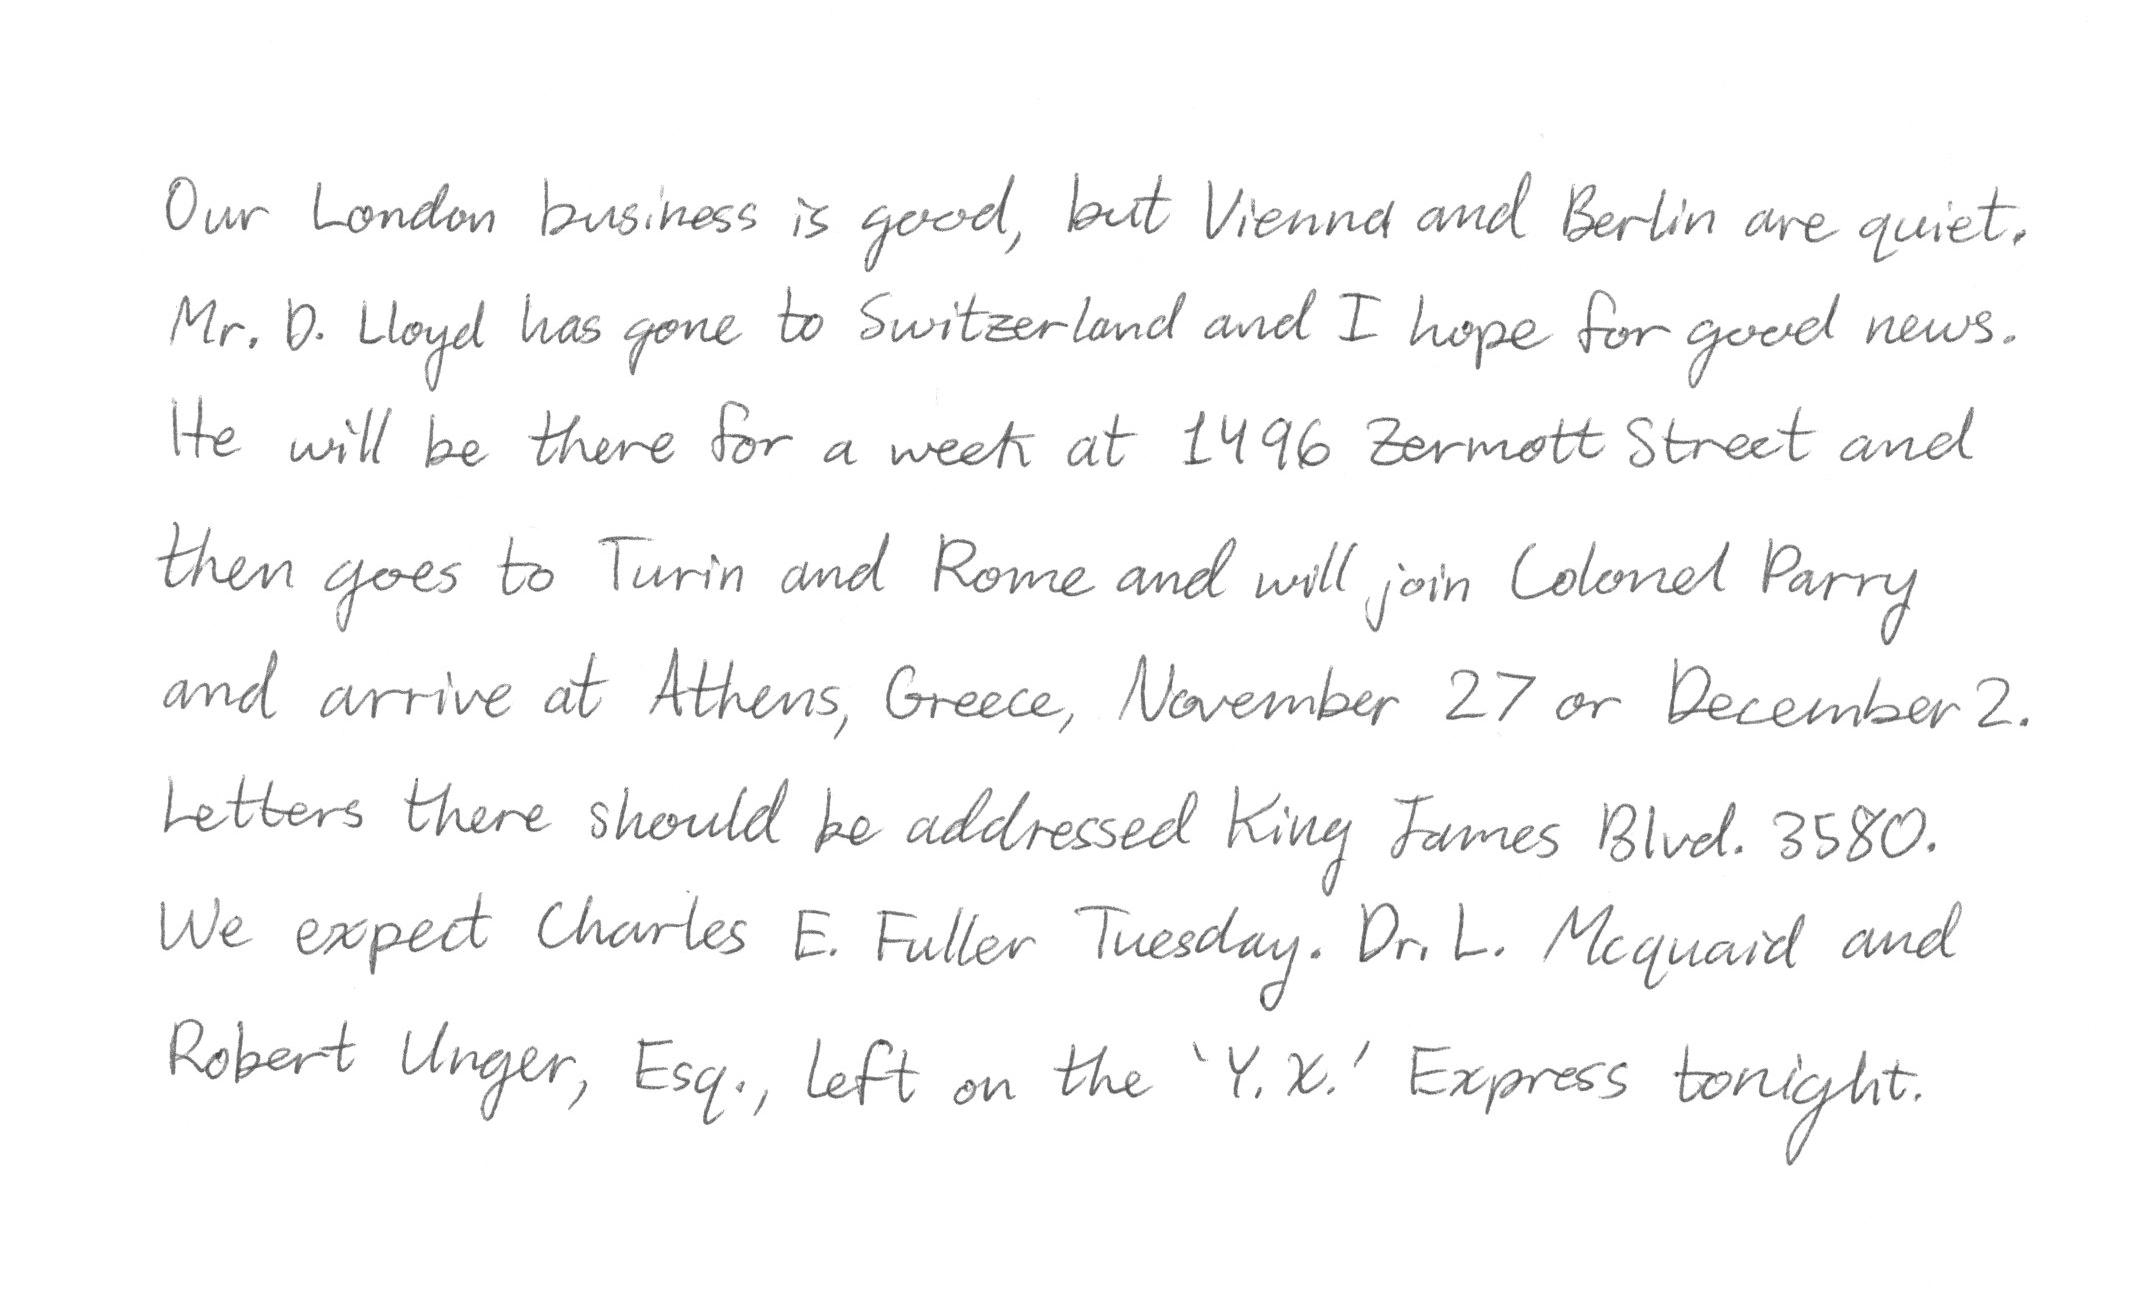 Our London business is good, but Vienna and Berlin are quiet.
Mr. D. Lloyd has gone to Switzerland and I hope for good news.
He will be there for a week at 1496 Zermott Street and
then goes to Turin and Rome and will join Colonel Parry
and arrive at Athens, Greece, November 27 or December 2.
Letters there should be addressed King James Blvd. 3580.
We expect Charles E. Fuller Tuesday. Dr. L. Mcquaid and
Robert Unger, Esq., left on the 'Y.X.' Express tonight.